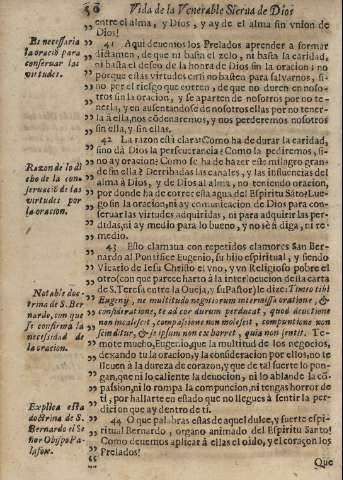 56 Vida de la Venerable Sierua de Dios
entre el alma, y Dios, y ay de el alma sin vnion de
Dios!
Es necessaria
la oraciõ para
conseruar las
virtudes.
41 Aqui deuemos los Prelados aprender a formar
dictamen, de que ni basta el zelo, ni basta la caridad,
ni basta el desseo de la honra de Dios sin la oracion: no
porque estas virtudes en si no basten para saluarnos, si-
no por el riesgo que corren, de que no duren en noso-
tros sin la oracion, y se aparten de nosotros por no te-
nerla, y en ausentandose de nosotros ellas por no tener-
la à ella, nos cõdenarèmos, y nos perderèmos nosotros
sin ella, y sin ellas.
Razon de lo di
cho de la con-
seruaciõ de las
virtudes por
la oracion.
42 La razon està clara: Como ha de durar la caridad,
sino dà Dios la perseuerancia? Como la pedirèmos, si-
no ay oracion? Como se ha de hazer este milagro gran-
de sin ella? Derribadas las canales, y las influencias del
alma à Dios, y de Dios al alma, no teniendo oracion,
por donde ha de correr esta agua del Espiritu Sãto? Lue-
go sin la oracion, ni ay comunicacion de Dios para con-
seruar las virtudes adquiridas, ni para adquirir las per-
didas, ni ay medio para lo bueno, y no sè si diga, ni re-
medio.
Notable doc-
trina de S. Ber
nardo, con que
se confirma la
necessidad de
la oracion.
43 Esto clamaua con repetidos clamores San Ber-
nardo al Pontifice Eugenio, su hijo espiritual, y siendo
Vicario de Iesu Christo el vno, y vn Religioso pobre el
otro (con que parece harto à la interlocucion desta carta
de S. Teresa entre la Oueja, y su Pastor) le dize: Timeo tibi
Eugeni, ne multitudo negotiorum intermissa oratione, &
consideratione, te ad cor durum perducat, quod deuotione
non incalescit, compassione non mollescit, compunctione non
scinditur, & se ipsum non exhorret, quia non sentit. Te-
mote mucho, Eugenio, que la multitud de los negocios,
dexando tu la oracion, y la consideracion por ellos, no te
lleuen à la dureza de coraçon, y que de tal suerte lo pon-
gan, que ni lo caliente la deuocion, ni lo ablande la cõ-
passion, ni lo rompa la compuncion, ni tengas horror de
ti, por hallarte en estado que no llegues à sentir la per-
dicion que ay dentro de ti.
Explica esta
doctrina de S.
Bernardo el Se
ñor Obispo Pa-
lafox.
44 O que palabras estas de aquel dulce, y fuerte espi-
ritual Bernardo, organo animado del Espiritu Santo!
Como deuemos aplicar à ellas el oìdo, y el coraçon los
Prelados!
Que